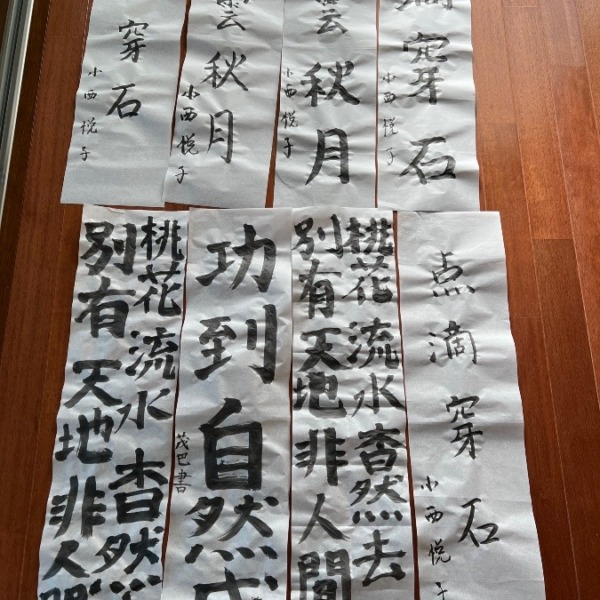 穿石
小西悦子
云秋月
小西悦子
云秋月
小西悦子
滴穿石
小西悦子
桃花流水杳然
別有天地非人間
功到自然成
茂巴書
桃花流水杳然去
別有天地非人間
点滴穿石
小西悦子